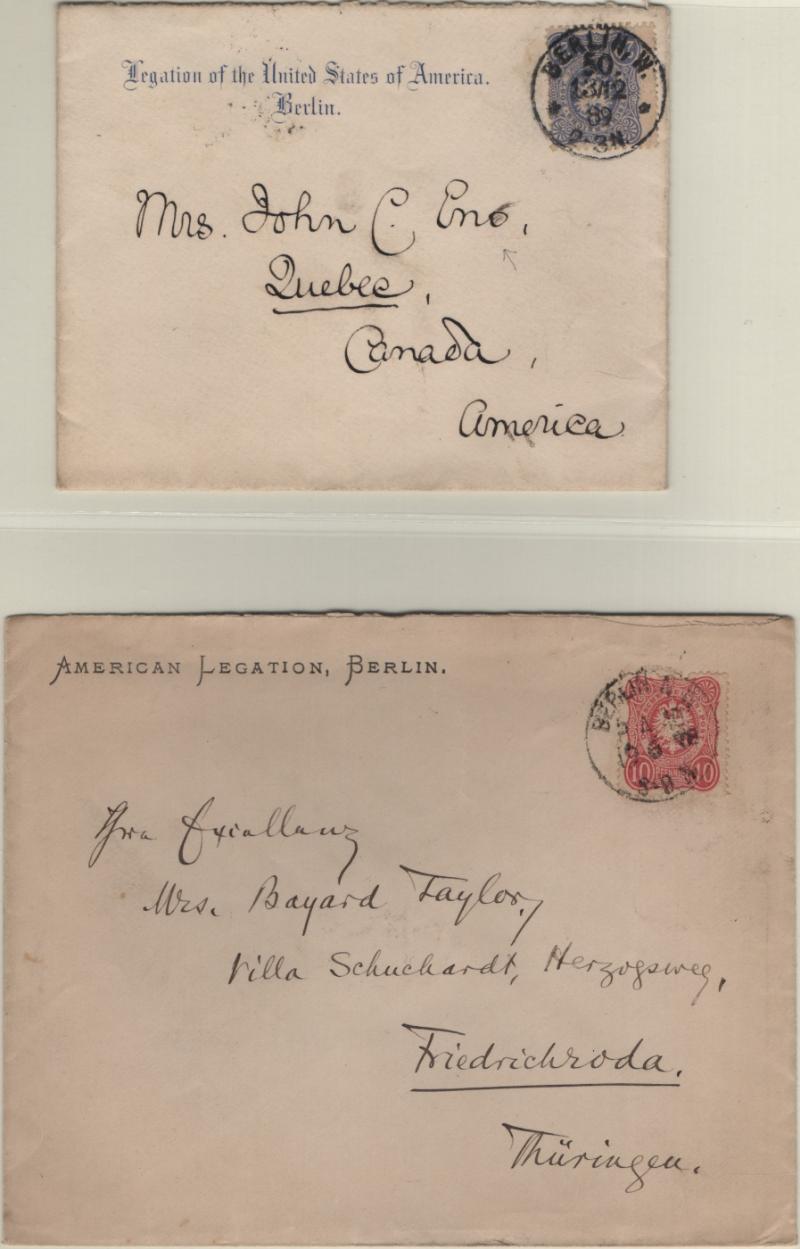 Legation of the United States of America.
Berlin.
BERLIN. W.
50
13/12
89
2-3N.
Mrs. John C. Eno,
Quebec,
Canada,
America
AMERICAN LEGATION, BERLIN.
BERLIN N.W.
10 10
Ihre Excellenz
Mrs. Bayard Taylor,
Villa Schuchardt, Herzogsweg,
Friedrichroda.
Thüringen.